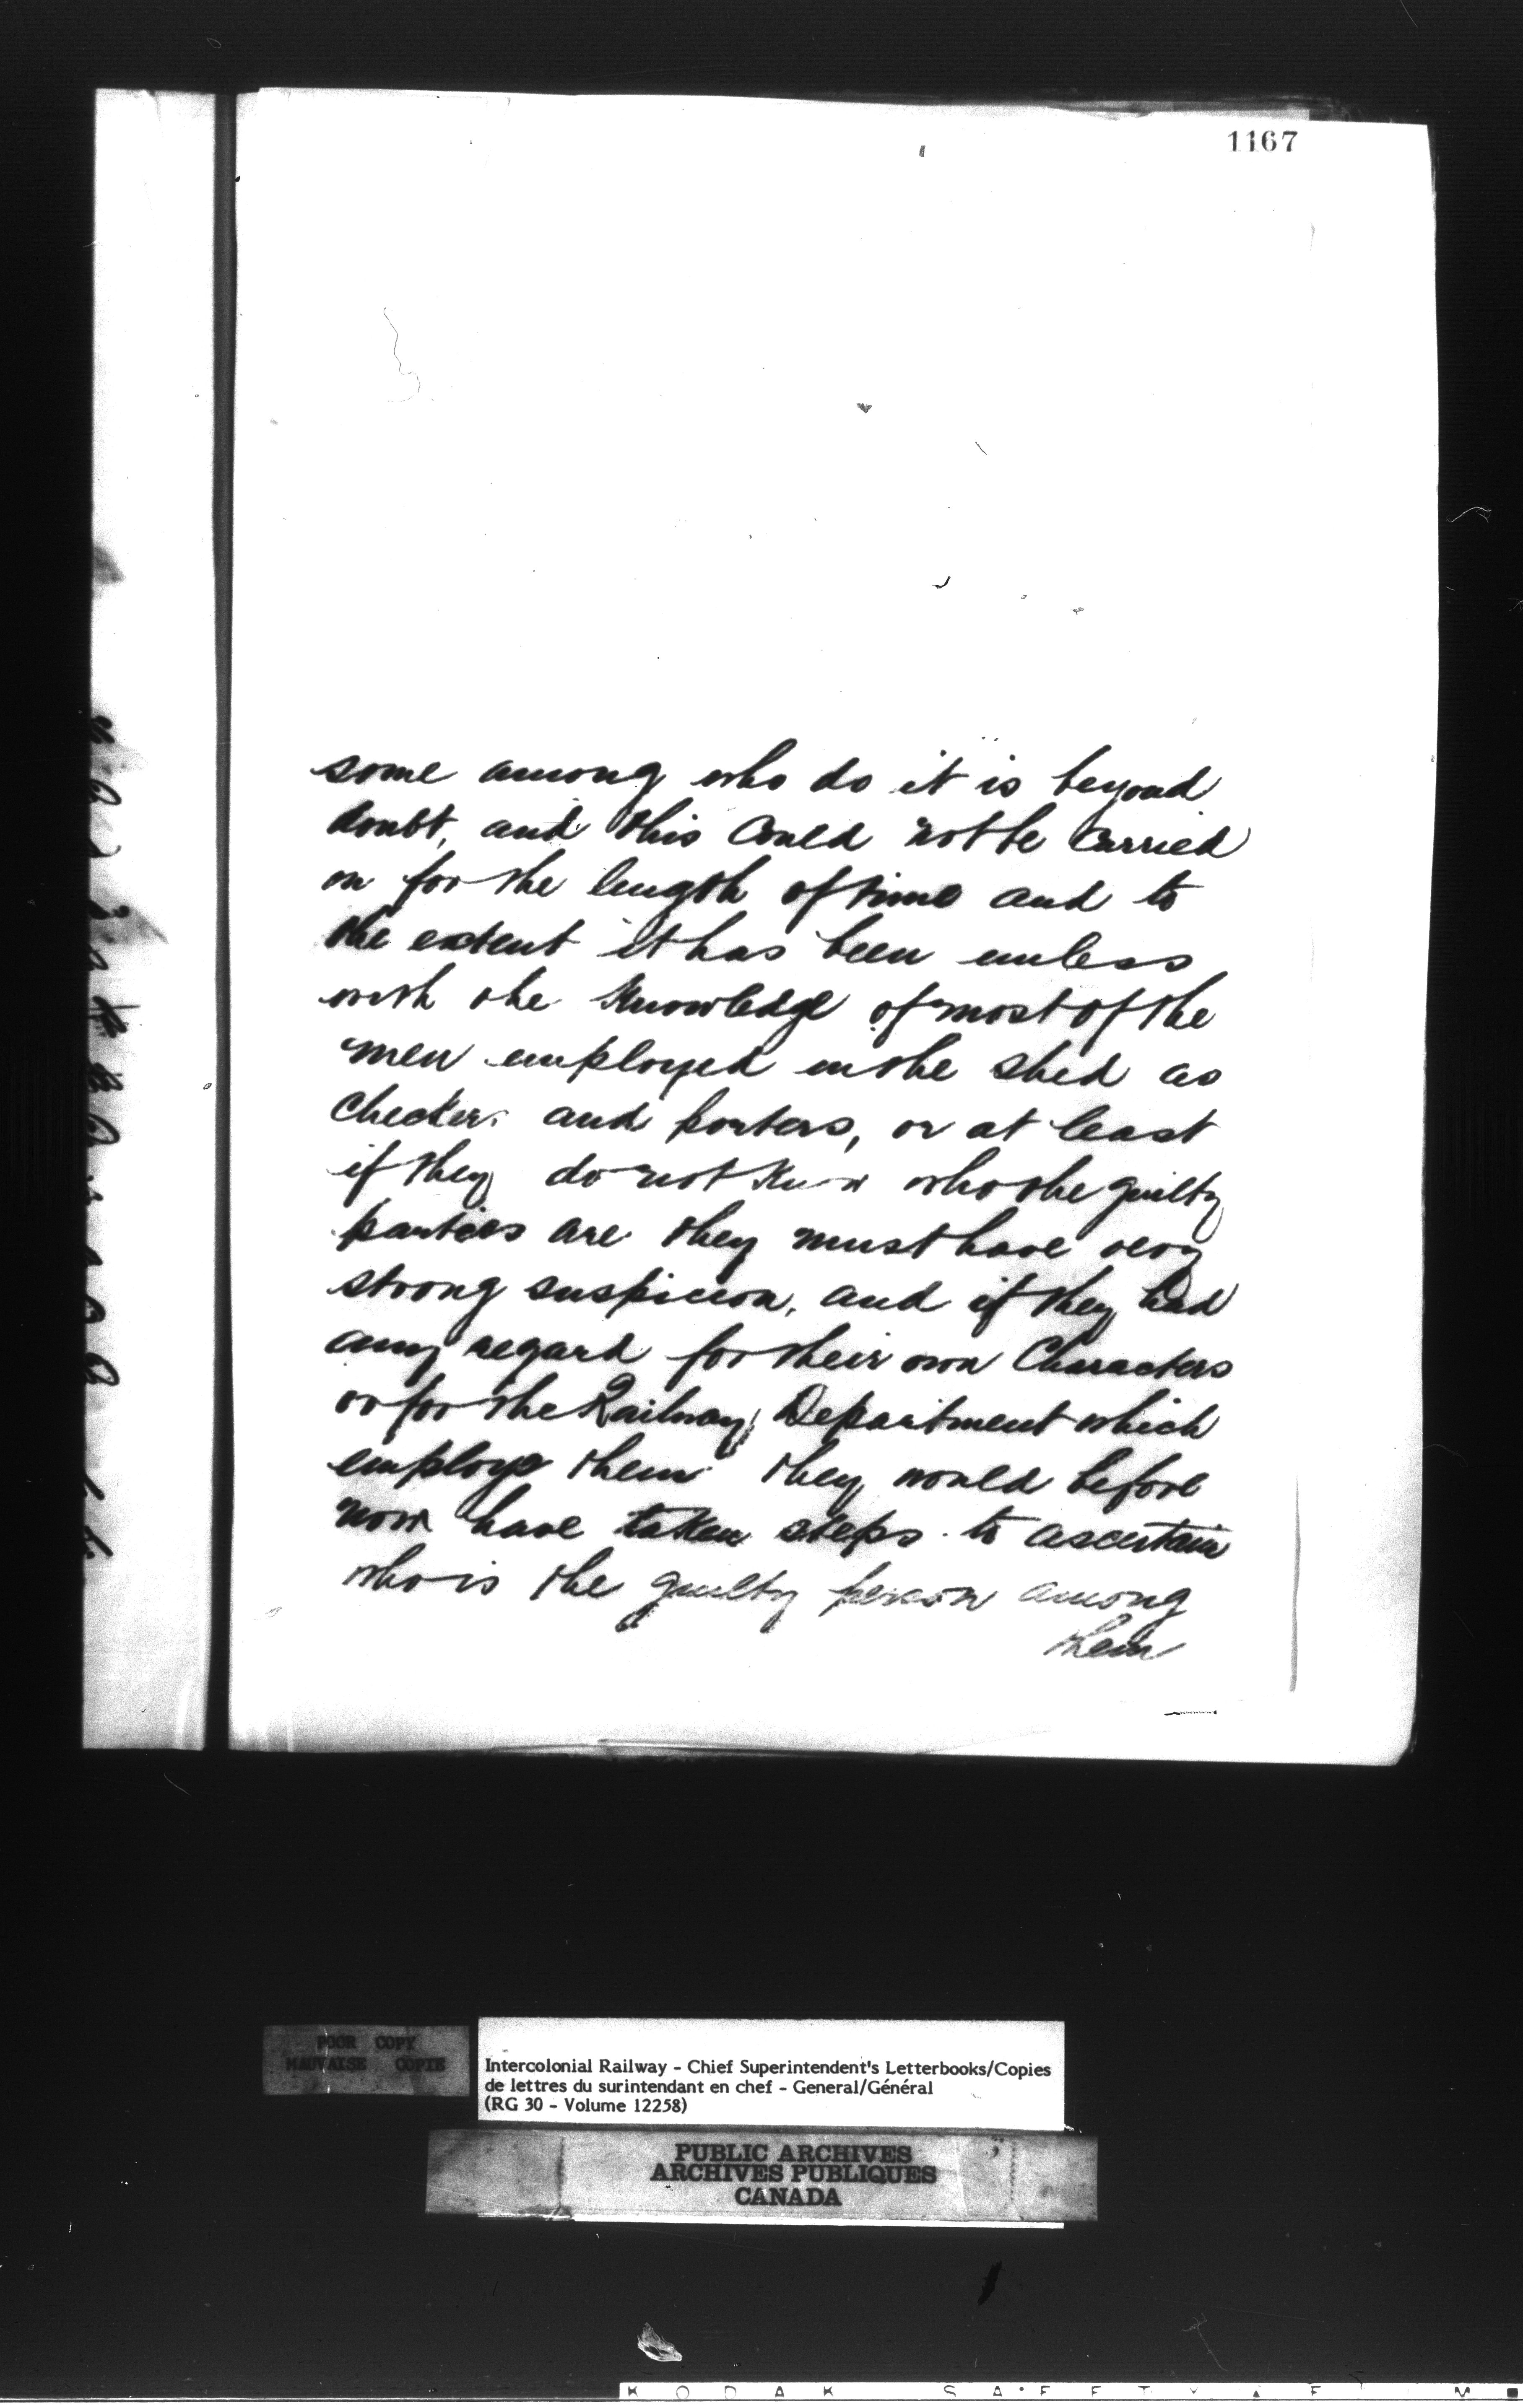 1167
some among who do it is beyond
doubt, and this could not be carried
on for the length of time and to
the extent it has been unless
with the knowledge of most of the
men employed in the shed as
Checkers and porters, or at least
if they do not know who the guilty
parties are they must have very
strong suspicion, and if they had
any regard for their own Characters
or for the Railway Department which
employs them they would before
now have taken steps to ascertain
who is the guilty person among
them
POOR COPY
MAUVAISE COPIE
Intercolonial Railway - Chief Superintendent's Letterbooks/Copies
de lettres du surintendant en chef - General/Général
(RG 30 - Volume 12258)
PUBLIC ARCHIVES
ARCHIVES PUBLIQUES
CANADA
KODAK SAFETY